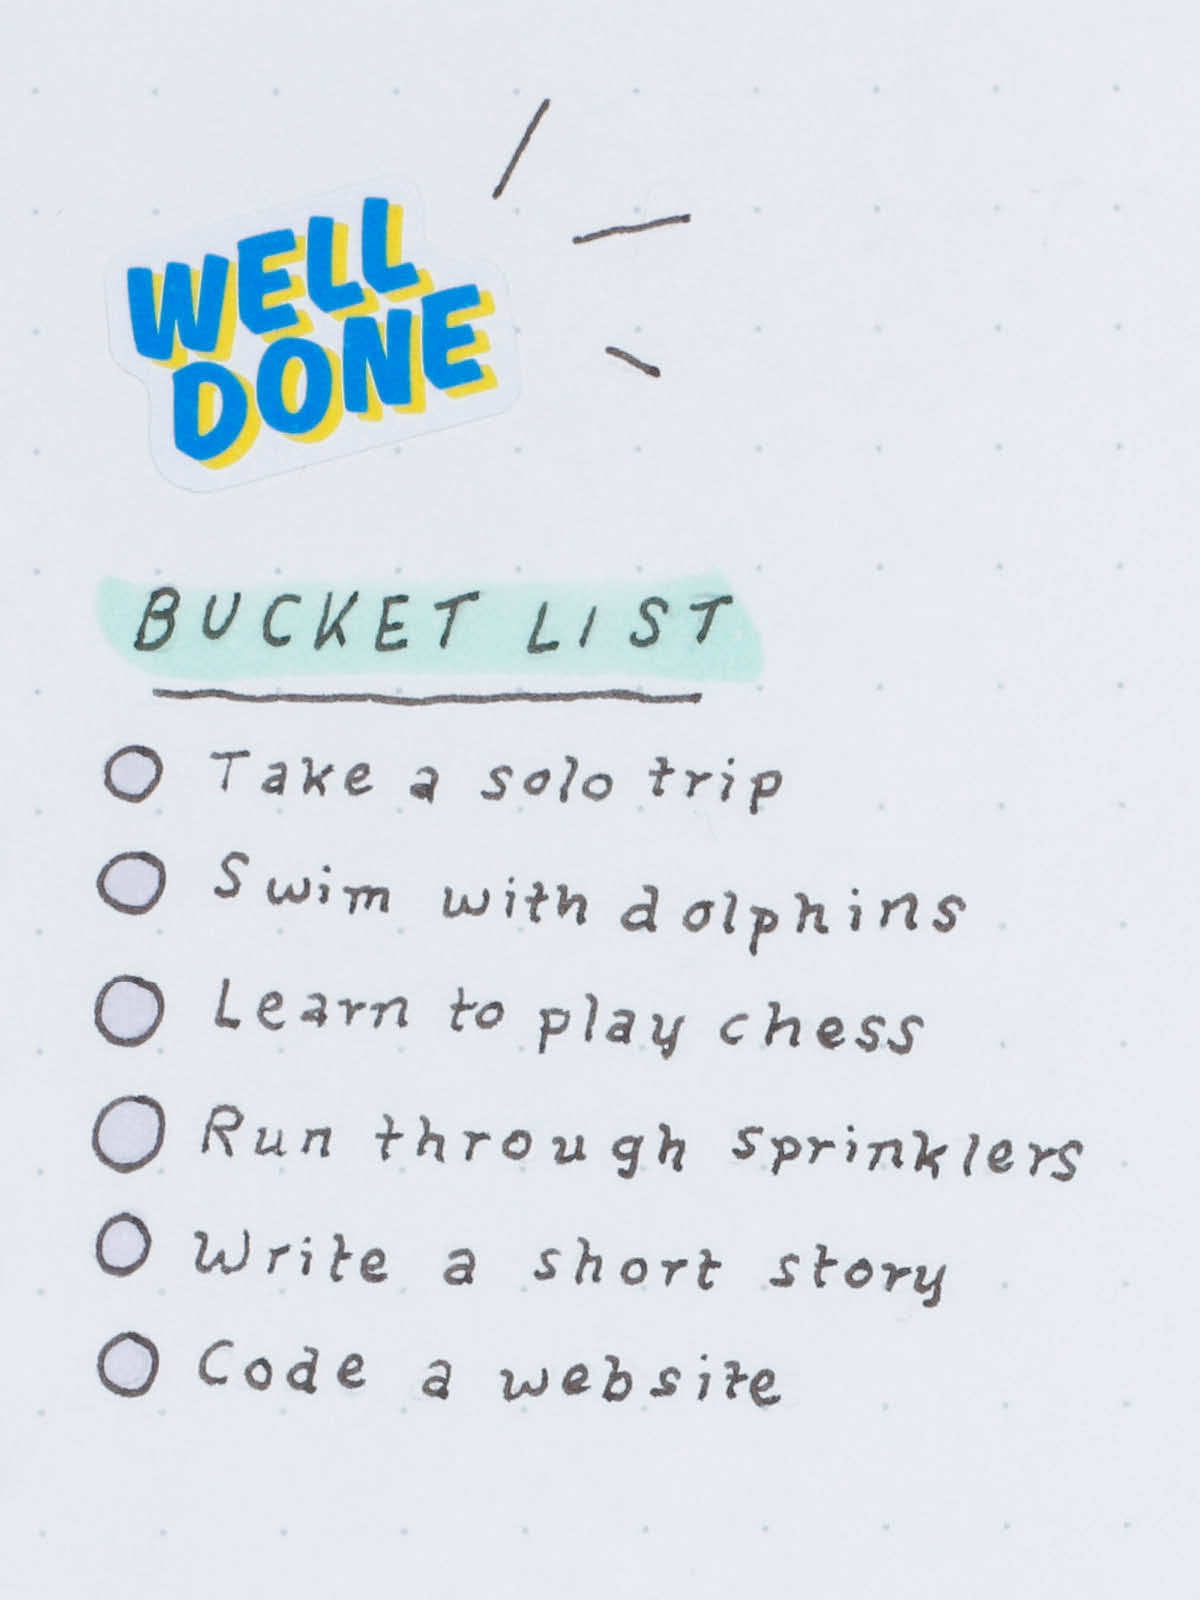 WELL
DONE
BUCKET LIST
Take a solo trip
Swim with dolphins
Learn to play chess
Run through sprinklers
Write a short story
Code a website